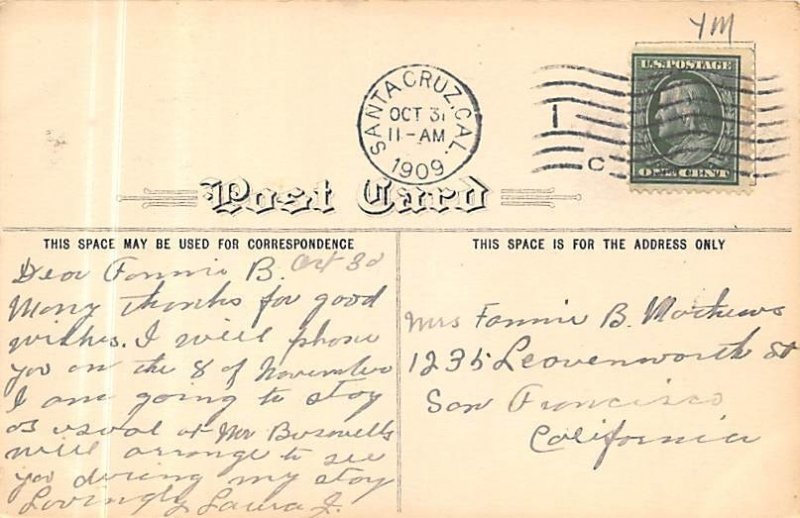 YM
U.S. POSTAGE
ONE CENT
SANTA CRUZ, CAL.
OCT 31
11-AM
1909
1
C
Post Card
THIS SPACE MAY BE USED FOR CORRESPONDENCE
Dear Fannie B. Oct 30
Many thanks for good
wishes. I will phone
you on the 8 of November
I am going to stay
as usual at Mr Boswells
will arrange to see
you during my stay
Lovingly Laura J.
THIS SPACE IS FOR THE ADDRESS ONLY
Mrs Fannie B. Mathews
1235 Leavenworth St
San Francisco
California